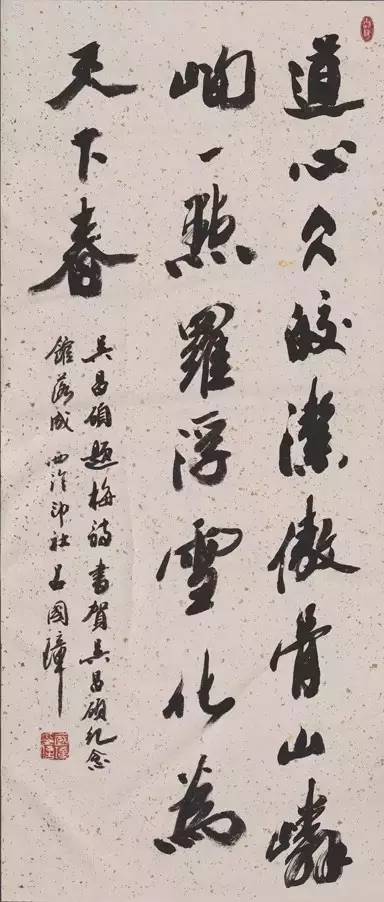 道心久皎潔傲骨山嶙
峋一點羅浮雪化為
天下春
吳昌碩題梅詩書賀吳昌碩紀念
館落成 西泠印社 呂國璋